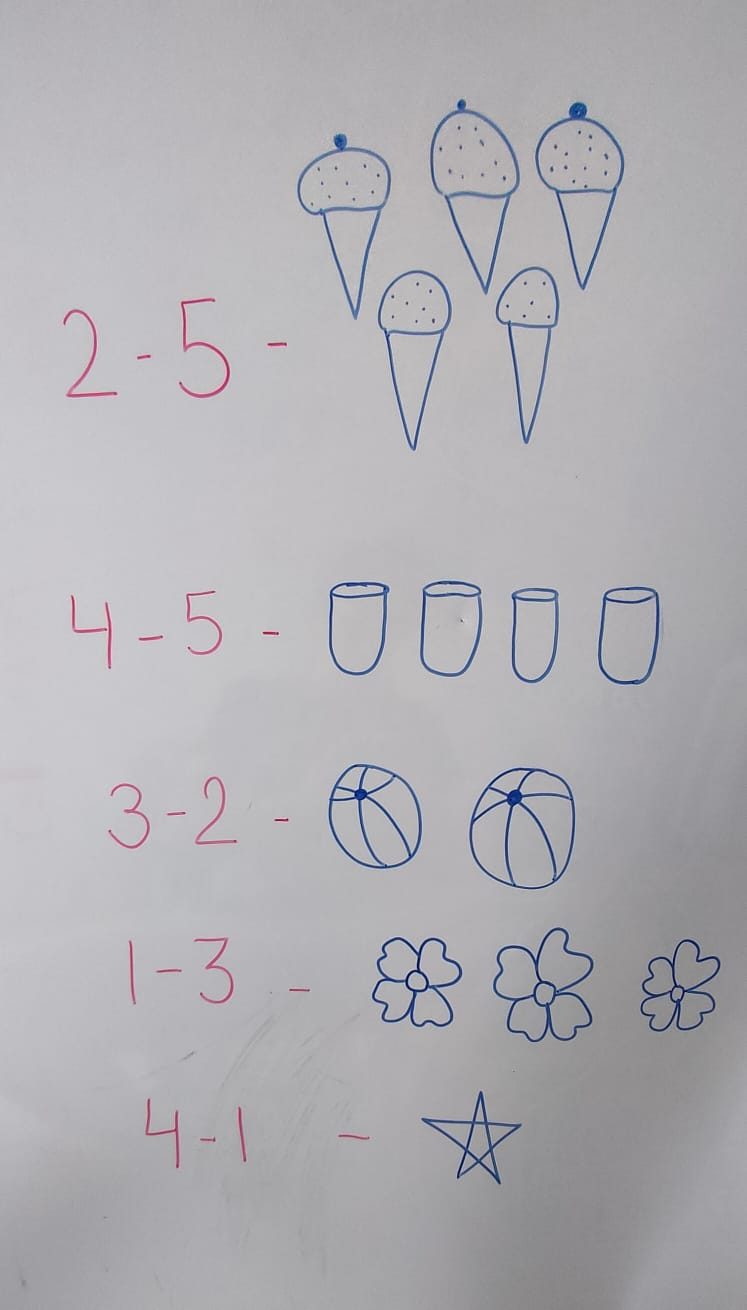 2-5-
4-5-
3-2-
1-3-
4-1-